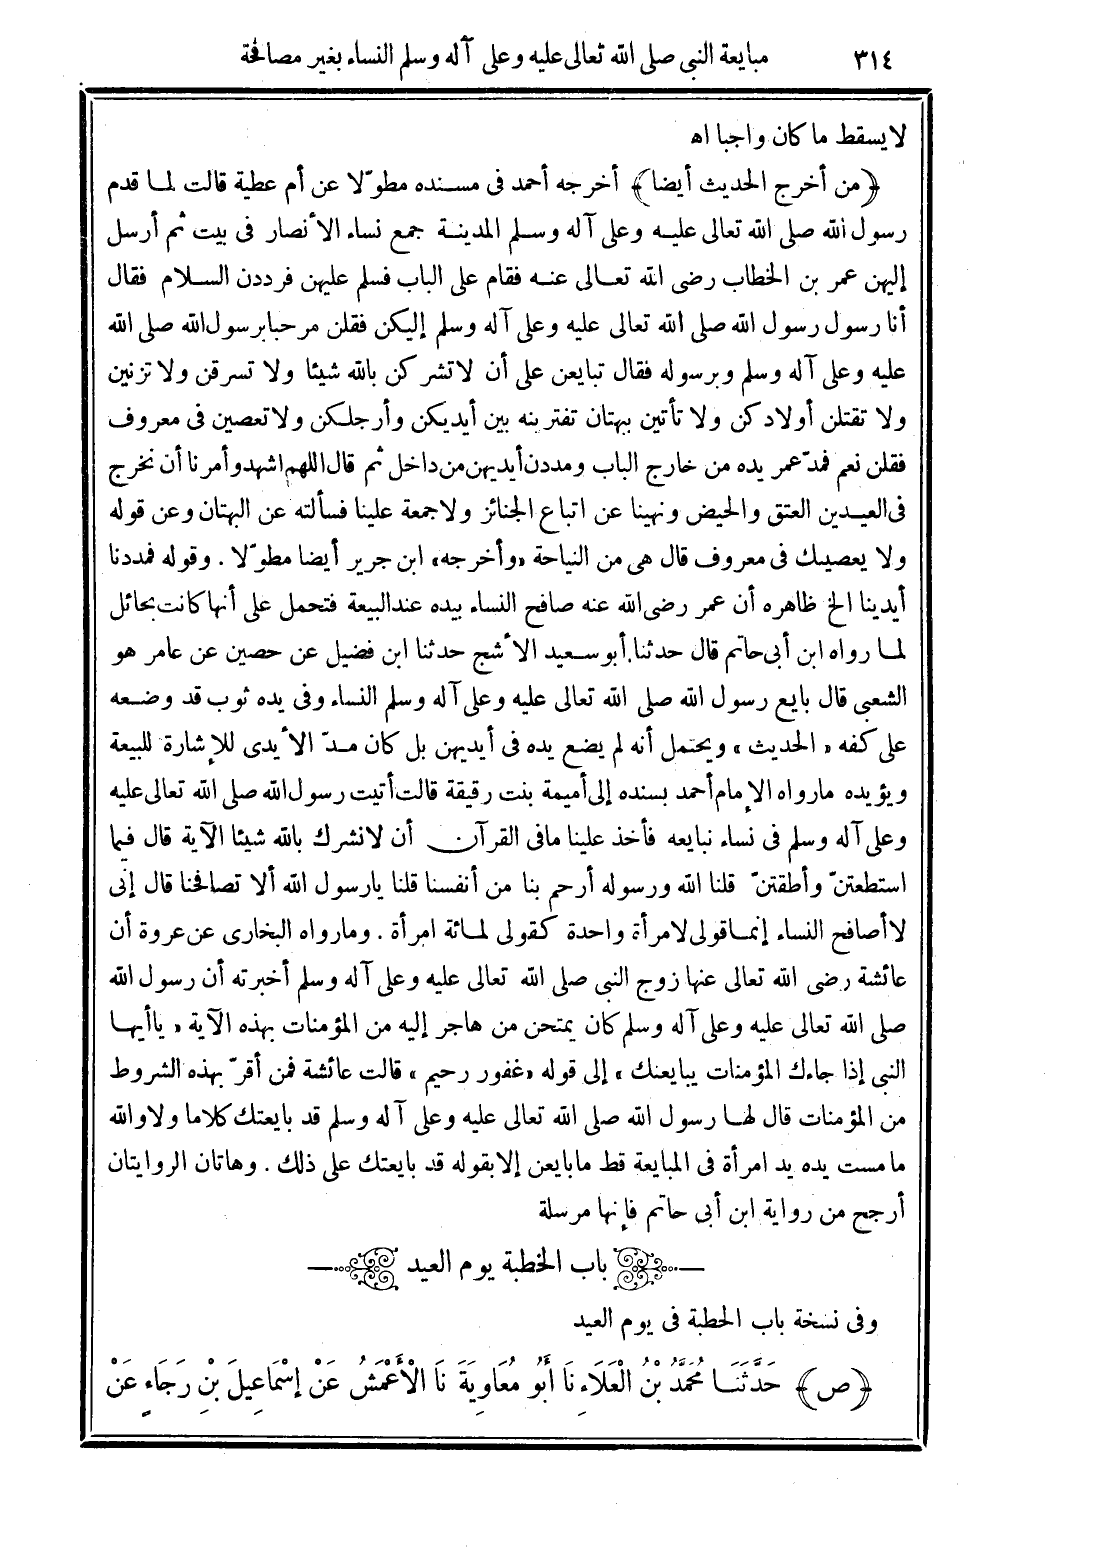 ٣١٤ مبايعة النبى صلى الله تعالى عليه وعلى آله وسلم النساء بغير مصافحة
لايسقط ما كان واجبا اه
﴿من أخرج الحديث أيضا﴾ أخرجه أحمد فى مسنده مطوّلا عن أم عطية قالت لما قدم
رسول الله صلى الله تعالى عليه وعلى آله وسلم المدينة جمع نساء الأنصار فى بيت ثم أرسل
إليهن عمر بن الخطاب رضى الله تعالى عنه فقام على الباب فسلم عليهن فرددن السلام فقال
أنا رسول رسول الله صلى الله تعالى عليه وعلى آله وسلم إليكن فقلن مرحبا برسول الله صلى الله
عليه وعلى آله وسلم وبرسوله فقال تبايعن على أن لاتشركن بالله شيئا ولا تسرقن ولا تزنين
ولا تقتلن أولادكن ولا تأتين ببهتان تفترينه بين أيديكن وأرجلكن ولا تعصين فى معروف
فقلن نعم فمدّ عمر يده من خارج الباب ومددن أيديهن من داخل ثم قال اللهم اشهد وأمرنا أن نخرج
فى العيدين العتق والحيض ونهينا عن اتباع الجنائز ولا جمعة علينا فسألته عن البهتان وعن قوله
ولا يعصينك فى معروف قال هى من النياحة «وأخرجه» ابن جرير أيضا مطوّلا . وقوله فمددنا
أيدينا الخ ظاهره أن عمر رضى الله عنه صافح النساء بيده عند البيعة فتحمل على أنها كانت بحائل
لما رواه ابن أبى حاتم قال حدثنا أبو سعيد الأشج حدثنا ابن فضيل عن حصين عن عامر هو
الشعبى قال بايع رسول الله صلى الله تعالى عليه وعلى آله وسلم النساء وفى يده ثوب قد وضعه
على كفه «الحديث» ويحتمل أنه لم يضع يده فى أيديهن بل كان مدّ الأيدى للإشارة للبيعة
ويؤيده مارواه الإمام أحمد بسنده إلى أميمة بنت رقيقة قالت أتيت رسول الله صلى الله تعالى عليه
وعلى آله وسلم فى نساء نبايعه فأخذ علينا مافى القرآن أن لانشرك بالله شيئا الآية قال فيما
استطعتنّ وأطقتنّ قلنا الله ورسوله أرحم بنا من أنفسنا قلنا يارسول الله ألا تصافحنا قال إنى
لا أصافح النساء إنما قولى لامرأة واحدة كقولى لمائة امرأة . ومارواه البخارى عن عروة أن
عائشة رضى الله تعالى عنها زوج النبى صلى الله تعالى عليه وعلى آله وسلم أخبرته أن رسول الله
صلى الله تعالى عليه وعلى آله وسلم كان يمتحن من هاجر إليه من المؤمنات بهذه الآية «ياأيها
النبى إذا جاءك المؤمنات يبايعنك» إلى قوله «غفور رحيم» قالت عائشة فمن أقرّ بهذه الشروط
من المؤمنات قال لها رسول الله صلى الله تعالى عليه وعلى آله وسلم قد بايعتك كلاما ولا والله
مامست يده يد امرأة فى المبايعة قط مابايعن إلا بقوله قد بايعتك على ذلك . وهاتان الروايتان
أرجح من رواية ابن أبى حاتم فإنها مرسلة
باب الخطبة يوم العيد
وفى نسخة باب الخطبة فى يوم العيد
﴿ص﴾ حَدَّثَنَا مُحَمَّدُ بْنُ الْعَلَاءِ نَا أَبُو مُعَاوِيَةَ نَا الْأَعْمَشُ عَنْ إِسْمَاعِيلَ بْنِ رَجَاءٍ عَنْ